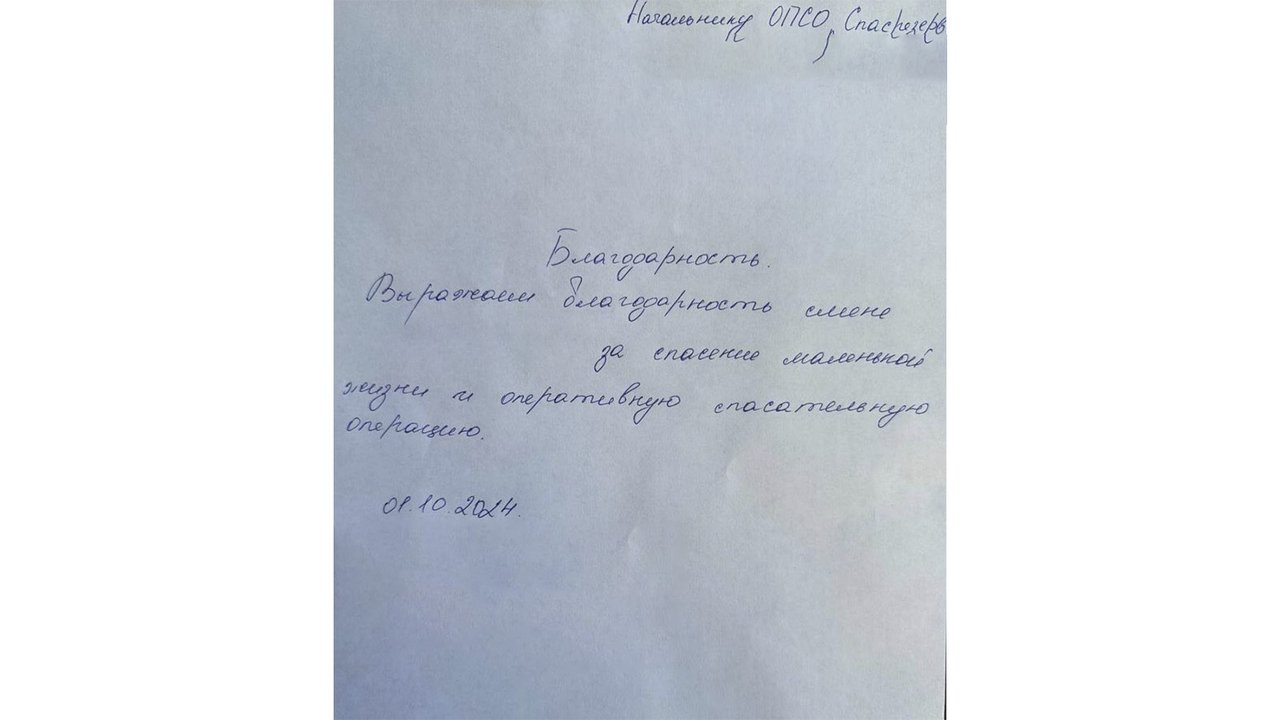 Начальнику ОПСО, Спасрезерв
Благодарность.
Выражаем благодарность смене
за спасение маленькой
жизни и оперативную спасательную
операцию.
01.10.2024.